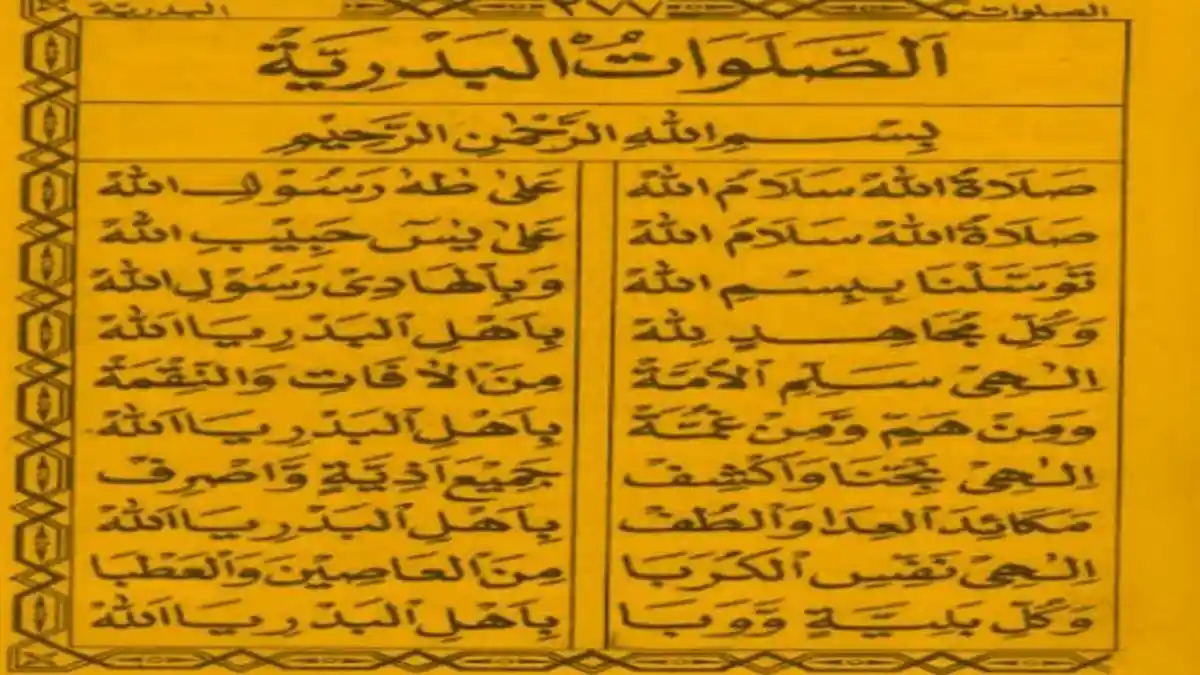 الصلوات ٣٧٧ البدرية
اَلصَّلَوَاتُ الْبَدْرِيَّةُ
بِسْمِ اللهِ الرَّحْمٰنِ الرَّحِيْمِ
صَلَاةُ اللهْ سَلَامُ اللهْ عَلَىٰ طٰهٰ رَسُوْلِ اللهْ
صَلَاةُ اللهْ سَلَامُ اللهْ عَلَىٰ يٰسٓ حَبِيْبِ اللهْ
تَوَسَّلْنَا بِبِسْمِ اللهْ وَبِالْهَادِىْ رَسُوْلِ اللهْ
وَكُلِّ مُجَاهِدٍ لِلهْ بِاَهْلِ الْبَدْرِ يَا اَللهْ
اِلٰهِىْ سَلِّمِ الْاُمَّةْ مِنَ الْاٰفَاتِ وَالنِّقْمَةْ
وَمِنْ هَمٍّ وَّمِنْ غُمَّةْ بِاَهْلِ الْبَدْرِ يَا اَللهْ
اِلٰهِىْ نَجِّنَا وَاكْشِفْ جَمِيْعَ اَذِيَّةٍ وَّاصْرِفْ
مَكَائِدَ الْعِدَا وَالْطُفْ بِاَهْلِ الْبَدْرِ يَا اَللهْ
اِلٰهِىْ نَفِّسِ الْكُرَبَا مِنَ الْعَاصِيْنَ وَالْعَطْبَا
وَكُلِّ بَلِيَّةٍ وَّوَبَا بِاَهْلِ الْبَدْرِ يَا اَللهْ